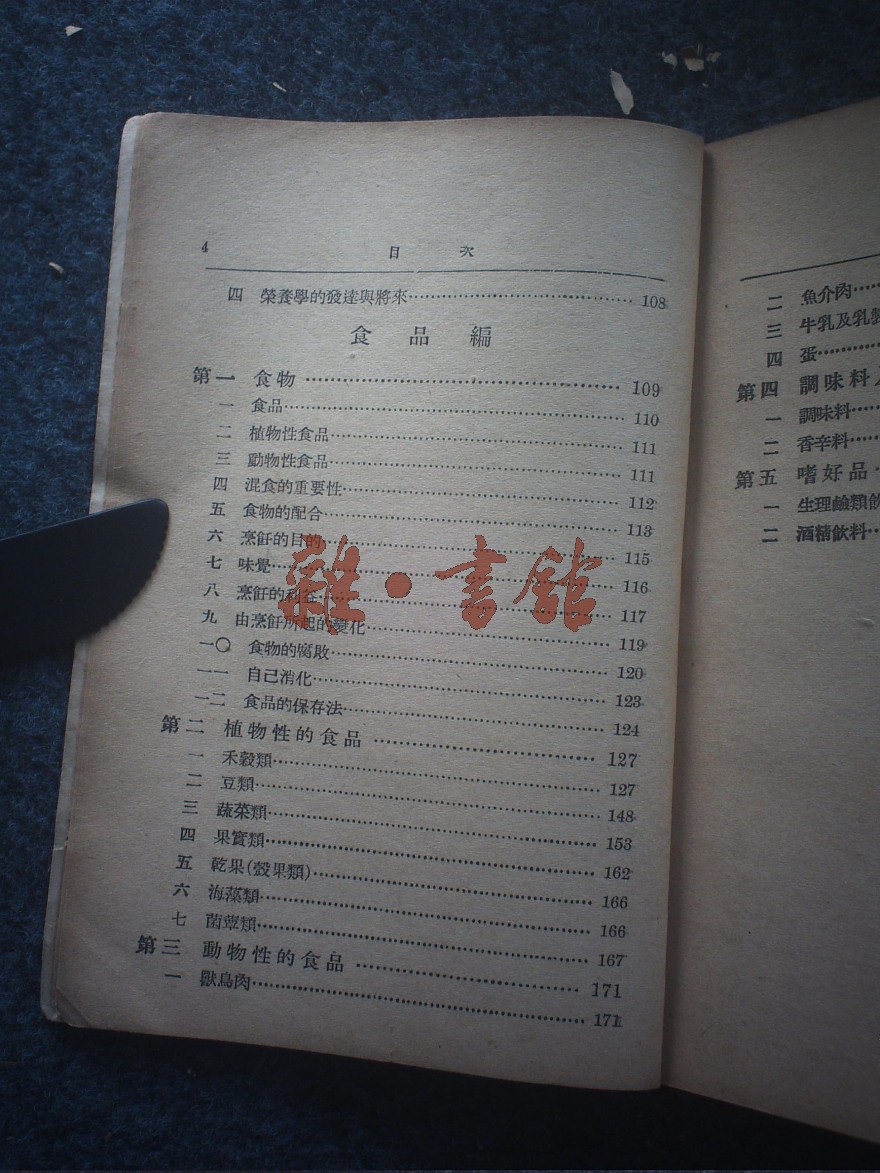 4 目次
四 榮養學的發達與將來……108
食品編
第一 食物……109
一 食品……110
二 植物性食品……111
三 動物性食品……111
四 混食的重要性……112
五 食物的配合……113
六 烹飪的目的……115
七 味覺……116
八 烹飪的利益……117
九 由烹飪所起的變化……119
一〇 食物的腐敗……120
一一 自己消化……123
一二 食品的保存法……124
第二 植物性的食品……127
一 禾穀類……127
二 豆類……148
三 蔬菜類……153
四 果實類……162
五 乾果(殼果類)……166
六 海藻類……166
七 菌蕈類……167
第三 動物性的食品……171
一 獸鳥肉……171
雜·書館
二 魚介肉……
三 牛乳及乳製
四 蛋……
第四 調味料及
一 調味料……
二 香辛料……
第五 嗜好品
一 生理鹼類飲
二 酒精飲料…